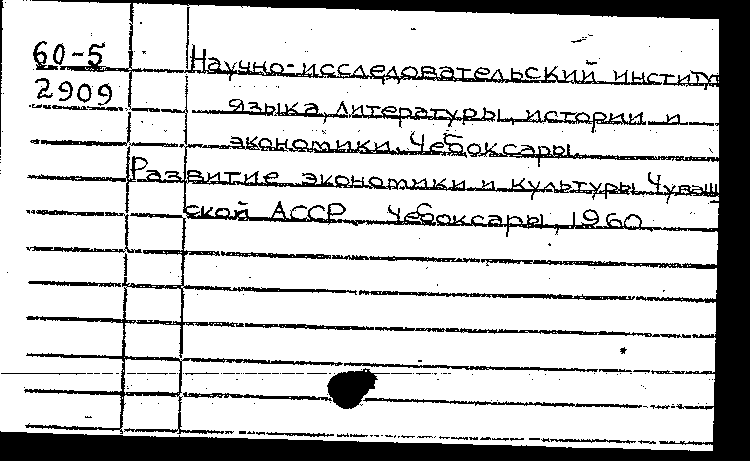 60-5 Научно-исследовательский институт
2909 языка, литературы, истории и
экономики. Чебоксары.
Развитие экономики и культуры Чуваш
ской АССР. Чебоксары, 1960.